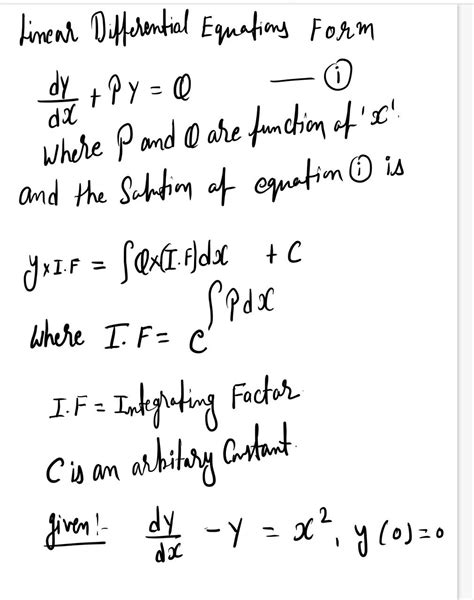 Linear Differential Equations Form
dy/dx + Py = Q — (i)
Where P and Q are function of 'x'.
and the Solution of equation (i) is
y×I.F = ∫Q×(I.F)dx + C
Where I.F = e^∫Pdx
I.F = Integrating Factor
C is an arbitary Constant.
given:- dy/dx - y = x², y(0)=0